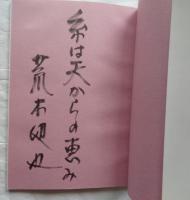 糸は天からの恵み
荒木曰也